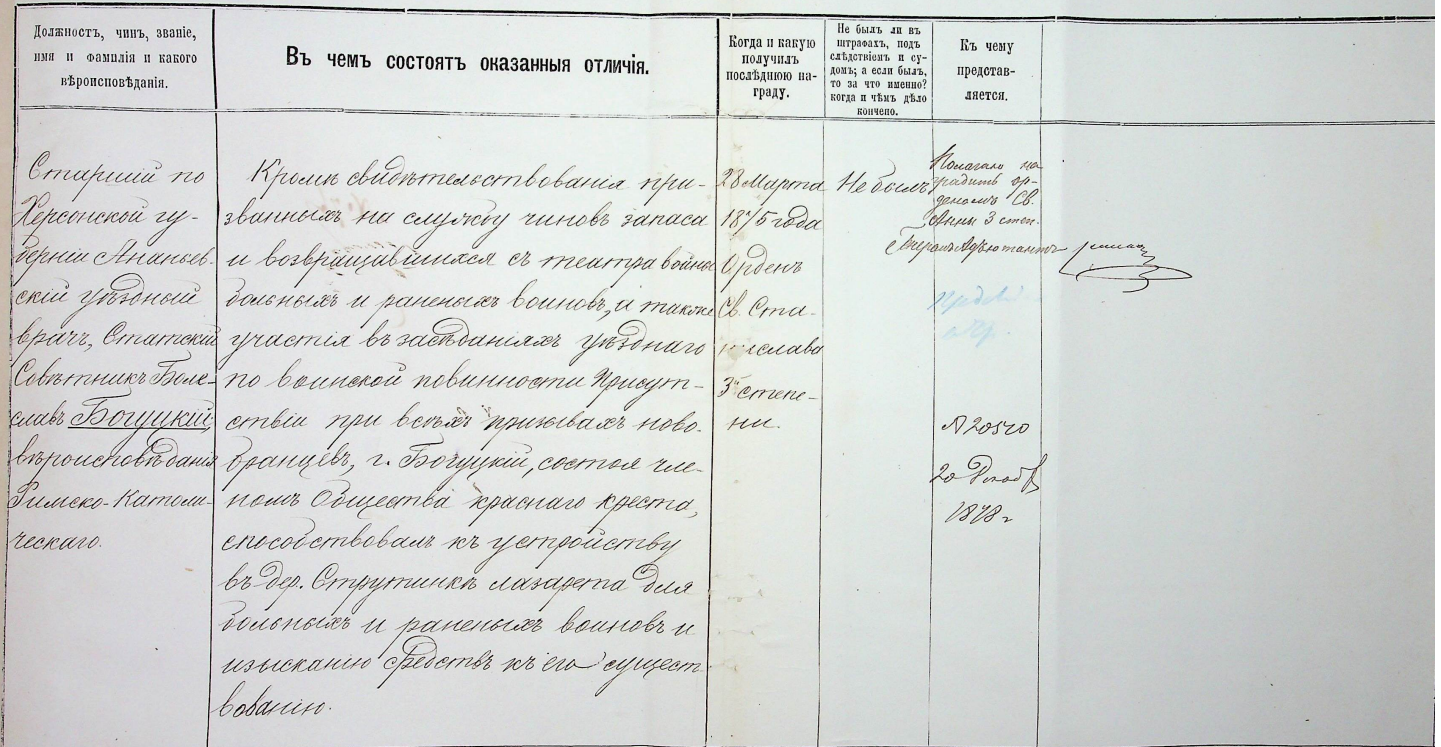 Должность, чинъ, званіе,
имя и фамилія и какого
вѣроисповѣданія.
Въ чемъ состоятъ оказанныя отличія.
Когда и какую
получилъ
послѣднюю на-
граду.
Не былъ ли въ
штрафахъ, подъ
слѣдствіемъ и су-
домъ; а если былъ,
то за что именно?
когда и чѣмъ дѣло
кончено.
Къ чему
представ-
ляется.
Старшій по
Херсонской гу-
берніи Ананьев-
скій уѣздный
врачъ, Статскій
Совѣтникъ Боле-
славъ Богуцкій,
вѣроисповѣданія
Римско-Католи-
ческаго.
Кромѣ свидѣтельствованія при-
званныхъ на службу чиновъ запаса
и возвращавшихся съ театра войны
больныхъ и раненыхъ воиновъ, и также
участія въ засѣданіяхъ уѣзднаго
по воинской повинности Присут-
ствіи при всѣхъ призывахъ ново-
бранцевъ, г. Богуцкій, состоя чле-
номъ Общества краснаго креста,
способствовалъ къ устройству
въ дер. Струтинкѣ лазарета для
больныхъ и раненыхъ воиновъ и
изысканію средствъ къ его сущест-
вованію.
28 Марта
1875 года
Орденъ
Св. Ста-
нислава
3й степе-
ни.
Не былъ
Полагаю на
градить ор-
деномъ Св.
Анны 3 степ.
Генералъ Адъютантъ
№ 20540
20 Декаб
1878 г